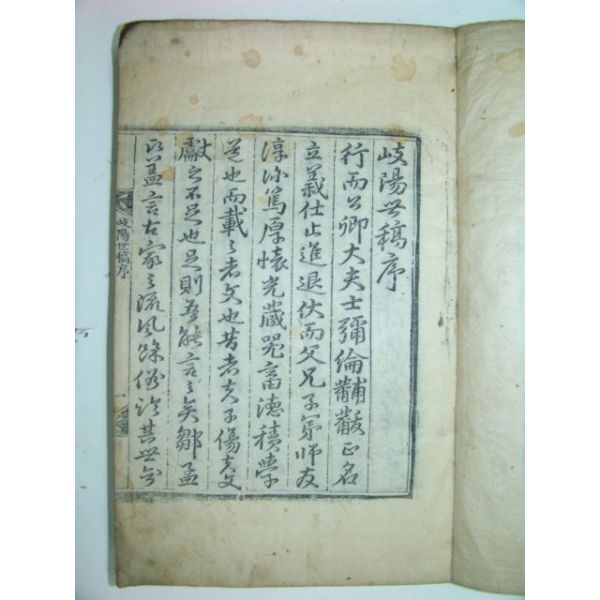 岐陽世稿序
行而公卿大夫士彌綸黼黻正名
立義仕止進退伏而父兄子
師友
淳深篤厚懷光藏器畜德積學
是也而載之者文也昔者夫子傷夫文
獻之不足也足則吾能言之矣鄒孟
氏蓋言古家之流風餘俗於其世
岐陽世稿序
一